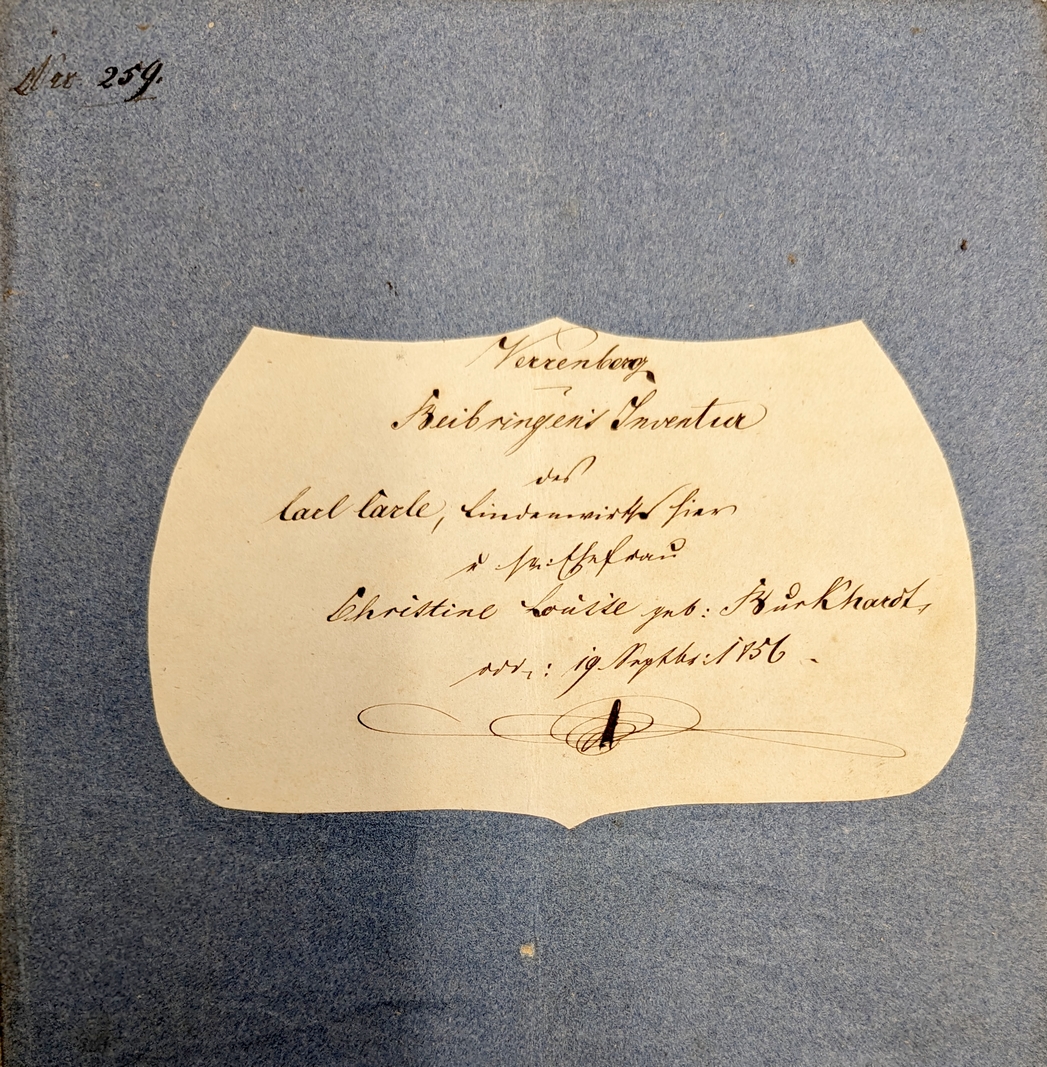 Nro 259.
Verrenberg
Beibringens Inventur
des
Carl Carle, Lindenwirths hier
u. sr: Ehefrau
Christine Louise geb: Burkhardt,
19 Septbr: 1856